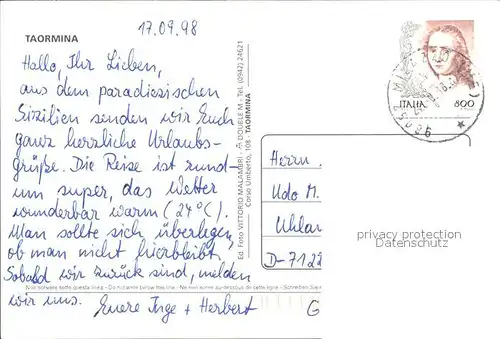 17.09.98
TAORMINA
Hallo, Ihr Lieben,
aus dem paradiesischen
Sizilien senden wir Euch
ganz herzliche Urlaubs-
grüße. Die Reise ist rund-
um super, das Wetter
wunderbar warm (24°C).
Man sollte sich überlegen,
ob man nicht hierbleibt.
Sobald wir zurück sind, melden
wir uns. Euere Inge + Herbert
Non scrivere sotto questa linea - Do not write below this line - Ne rien écrire au-dessous de cette ligne - Schreiben Sie
Ed. Foto VITTORIO MALAMBRI - DOUBLE M. Tel. (0942) 24621
Corso Umberto, 108 - TAORMINA
ITALIA 800
Herrn
Udo M.
Uhlan
D-7122
G
privacy protection
Datenschutz